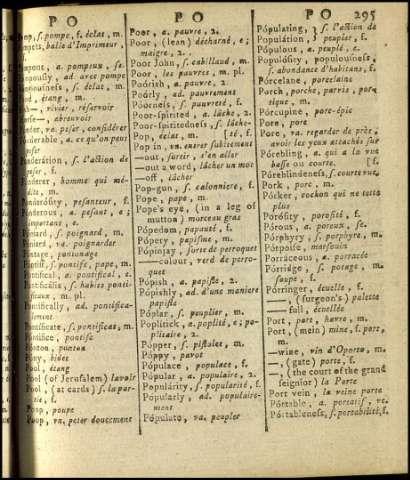 PO
PO
PO
295
s. pompe, f. éclat, m.
balie d'Imprimeur,
a. pompeux, se
ad. avec pompe
s. éclat, m.
étang, m.
vivier, réservoir
abreuvoir
va. peser, considérer
a. ce qu'on peut
peser
s. l'action de
peser, f.
homme qui mé-
dite, m.
pesanteur, f.
a. pesant, e;
important, e.
s. poignard, m.
va. poignarder
Pontage, pontonage
s. pontife, pape, m.
a. pontifical, e.
s. habits ponti-
ficaux, m. pl.
Pontifically, ad. pontificale-
ment
Pontificate, s. pontificat, m.
Pontifice, pontife
Ponton, ponton
Pony, bidet
Pool, étang
Pool (of Jerusalem) lavoir
Pool, (at cards) s. la par-
tie,
Poop, poupe
Poop, va. peter doucement
Poor, a. pauvre, 2.
Poor, (lean) décharné, e;
maigre, 2.
Poor John, s. cabillaud, m.
Poor, les pauvres, m. pl.
Póorish, a. pauvre, 2.
Póorly, ad. pauvrement
Póorness, s. pauvreté, f.
Poor-spirited, a. lâche, 2.
Poor-spiritedness, s. lâche-
Pop, éclat, m. [té, f.
Pop in, vn. entrer subitement
—out, sortir, s'en aller
—out a word, lâcher un mot
—off, lâcher
Pop-gun, s. calonniere, f.
Pope, pape, m.
Pope's eye, (in a leg of
mutton) morceau gras
Pópedom, papauté, f.
Pópery, papisme, m.
Pópinjay, sorte de perroquet
—colour, verd de perro-
quet
Pópish, a. papiste, 2.
Pópishly, ad. d'une maniere
papiste
Póplar, s. peuplier, m.
Poplitick, a. poplité, e; po-
plitaire, 2.
Pópper, s. pistolet, m.
Póppy, pavot
Pópulace, populace, f.
Pópular, a. populaire, 2.
Populárity, s. popularité, f.
Pópularly, ad. populaire-
ment
Pópulate, va. peupler
Pópulating, s. l'action de
Populátion, peupler, f.
Pópulous, a. peuplé, e.
Populósity, populousness,
s. abondance d'habitans, f.
Pórcelane, porcelaine
Porch, porche, parvis, por-
tique, m.
Pórcupine, porc-épic
Pore, pore
Pore, va. regarder de près,
avoir les yeux attachés sur
Pórebling, a. qui a la vue
basse ou courte. [f.
Póreblindness, s. courte vue,
Pork, porc, m.
Pócker, cochon qui ne tette
plus
Porósity, porosité, f.
Pórous, a. poreux, se.
Pórphyry, s. porphyre, m.
Pórpoise, marsouin
Porráceous, a. porracée
Pórridge, s. potage, m.
soupe, f.
Pórringer, écuelle, f.
—, (surgeon's) palette
—full, écuellée
Port, port, havre, m.
Port, (mein) mine, f. port,
m.
—wine, vin d'Oporto, m.
—, (gate) porte, f.
—, (the court of the grand
seignior) la Porte
Port vein, la veine porte
Pórtable, a. portatif, ve.
Pórtableness, s. portabilité, f.